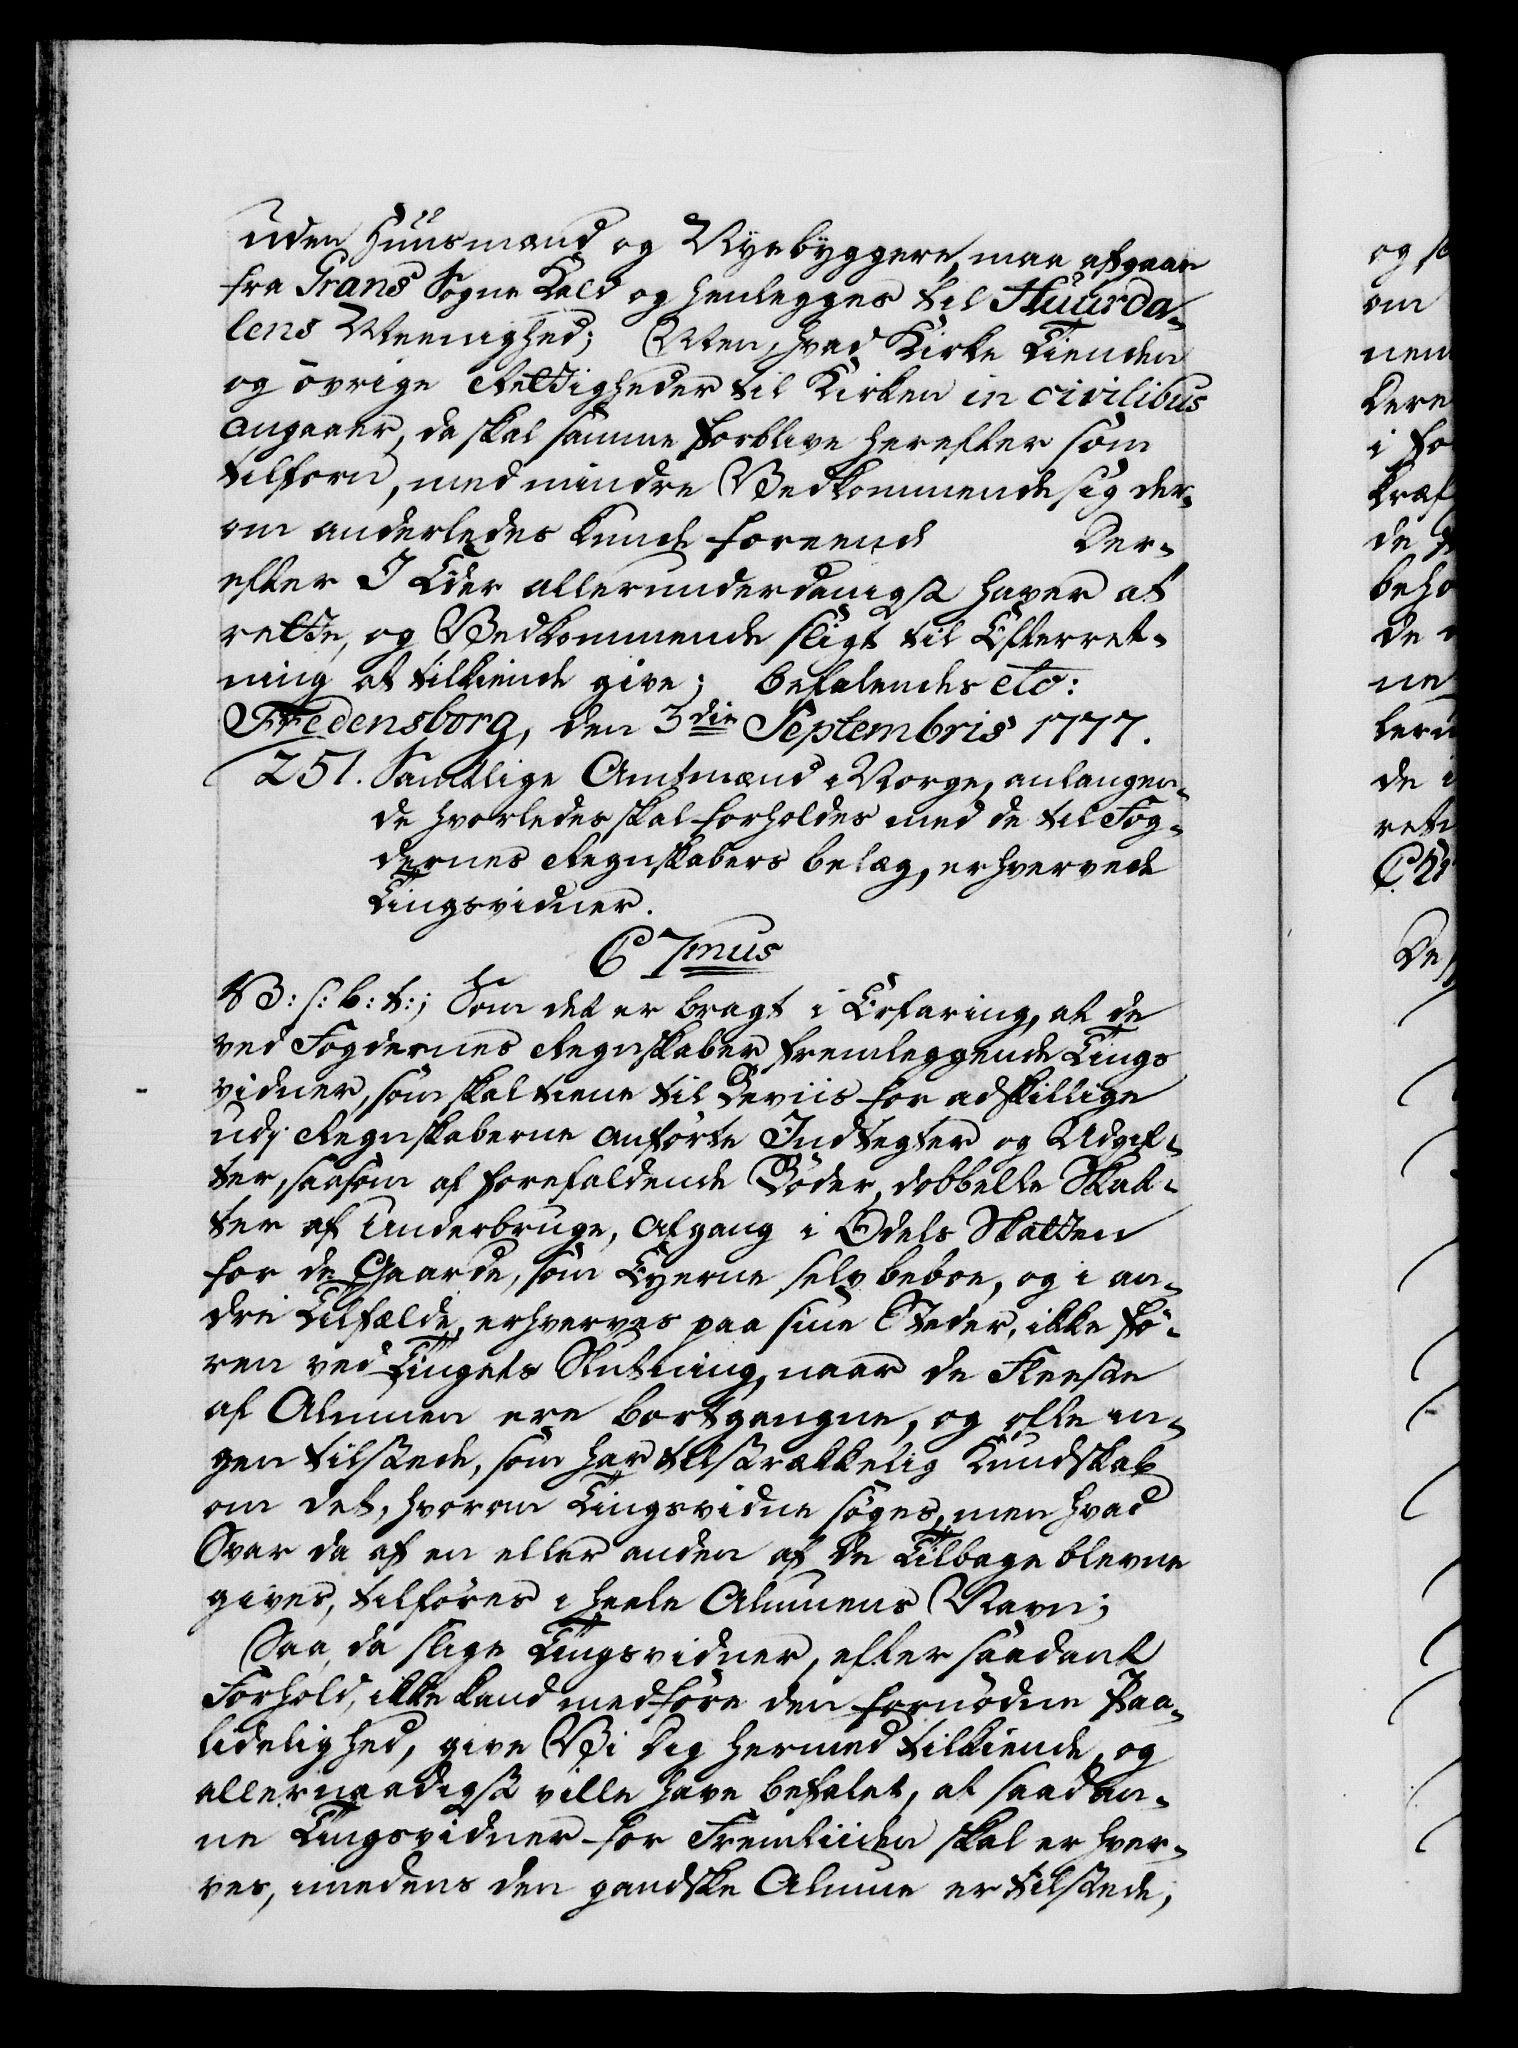 uden Huusmænd og Nyebyggere, maa afgaae
fra Grans Sogne Kald og henlegges til Huurda-
lens Meenighed; Men, hvad Kirke Tienden
og övrige Rettigheder til Kirken in civilibus
angaaer, da skal samme forblive herefter som
tilforn, med mindre Vedkommende sig der-
om anderledes kunde foreene Der-
efter I Eder allerunderdanigst haver at
rette, og Vedkommende sligt til Efterret-
ning at tilkiende give; befalendes etc:
Fredensborg, den 3die Septembris 1777.
251. Samtlige Amtmænd i Norge, anlangen-
de hvorledes skal forholdes med de til Fog-
dernes Regnskabers belæg, erhvervede
Tingsvidner.
C 7mus
V: s: b: t:; Som det er bragt i Erfaring, at de
ved Fogdernes Regnskaber fremleggende Tings
vidner, som skal tiene til Beviis for adskillige
udj Regnskaberne anförte Indtegter og Udgif-
ter, saasom af forefaldende Böder, dobbelte Skat-
ter af Underbruge, Afgang i Odels Skatten
for de Gaarde, som Eyerne selv beboe, og i an-
dre Tilfælde, erhverves paa sine Steder, ikke för-
ren ved Tingets Slutning, naar de Fleeste
af Almuen ere bortgangne, og ofte in-
gen tilstede, som har tilstrækkelig Kundskab
om det, hvorom Tingsvidne söges, men hvad
Svar da af en eller anden af de Tilbage blevne
gives, tilföres i heele Almuens Navn;
Saa, da slige Tingsvidner, efter saadant
Forhold, ikke kand medföre den fornödne Paa-
lidelighed, give Vi dig hermed tilkiende, og
allernaadigst ville have befalet, at saadan-
ne Tingsvidner for Fremtiiden skal erhver-
ves, imedens den gandske Almue er tilstede,